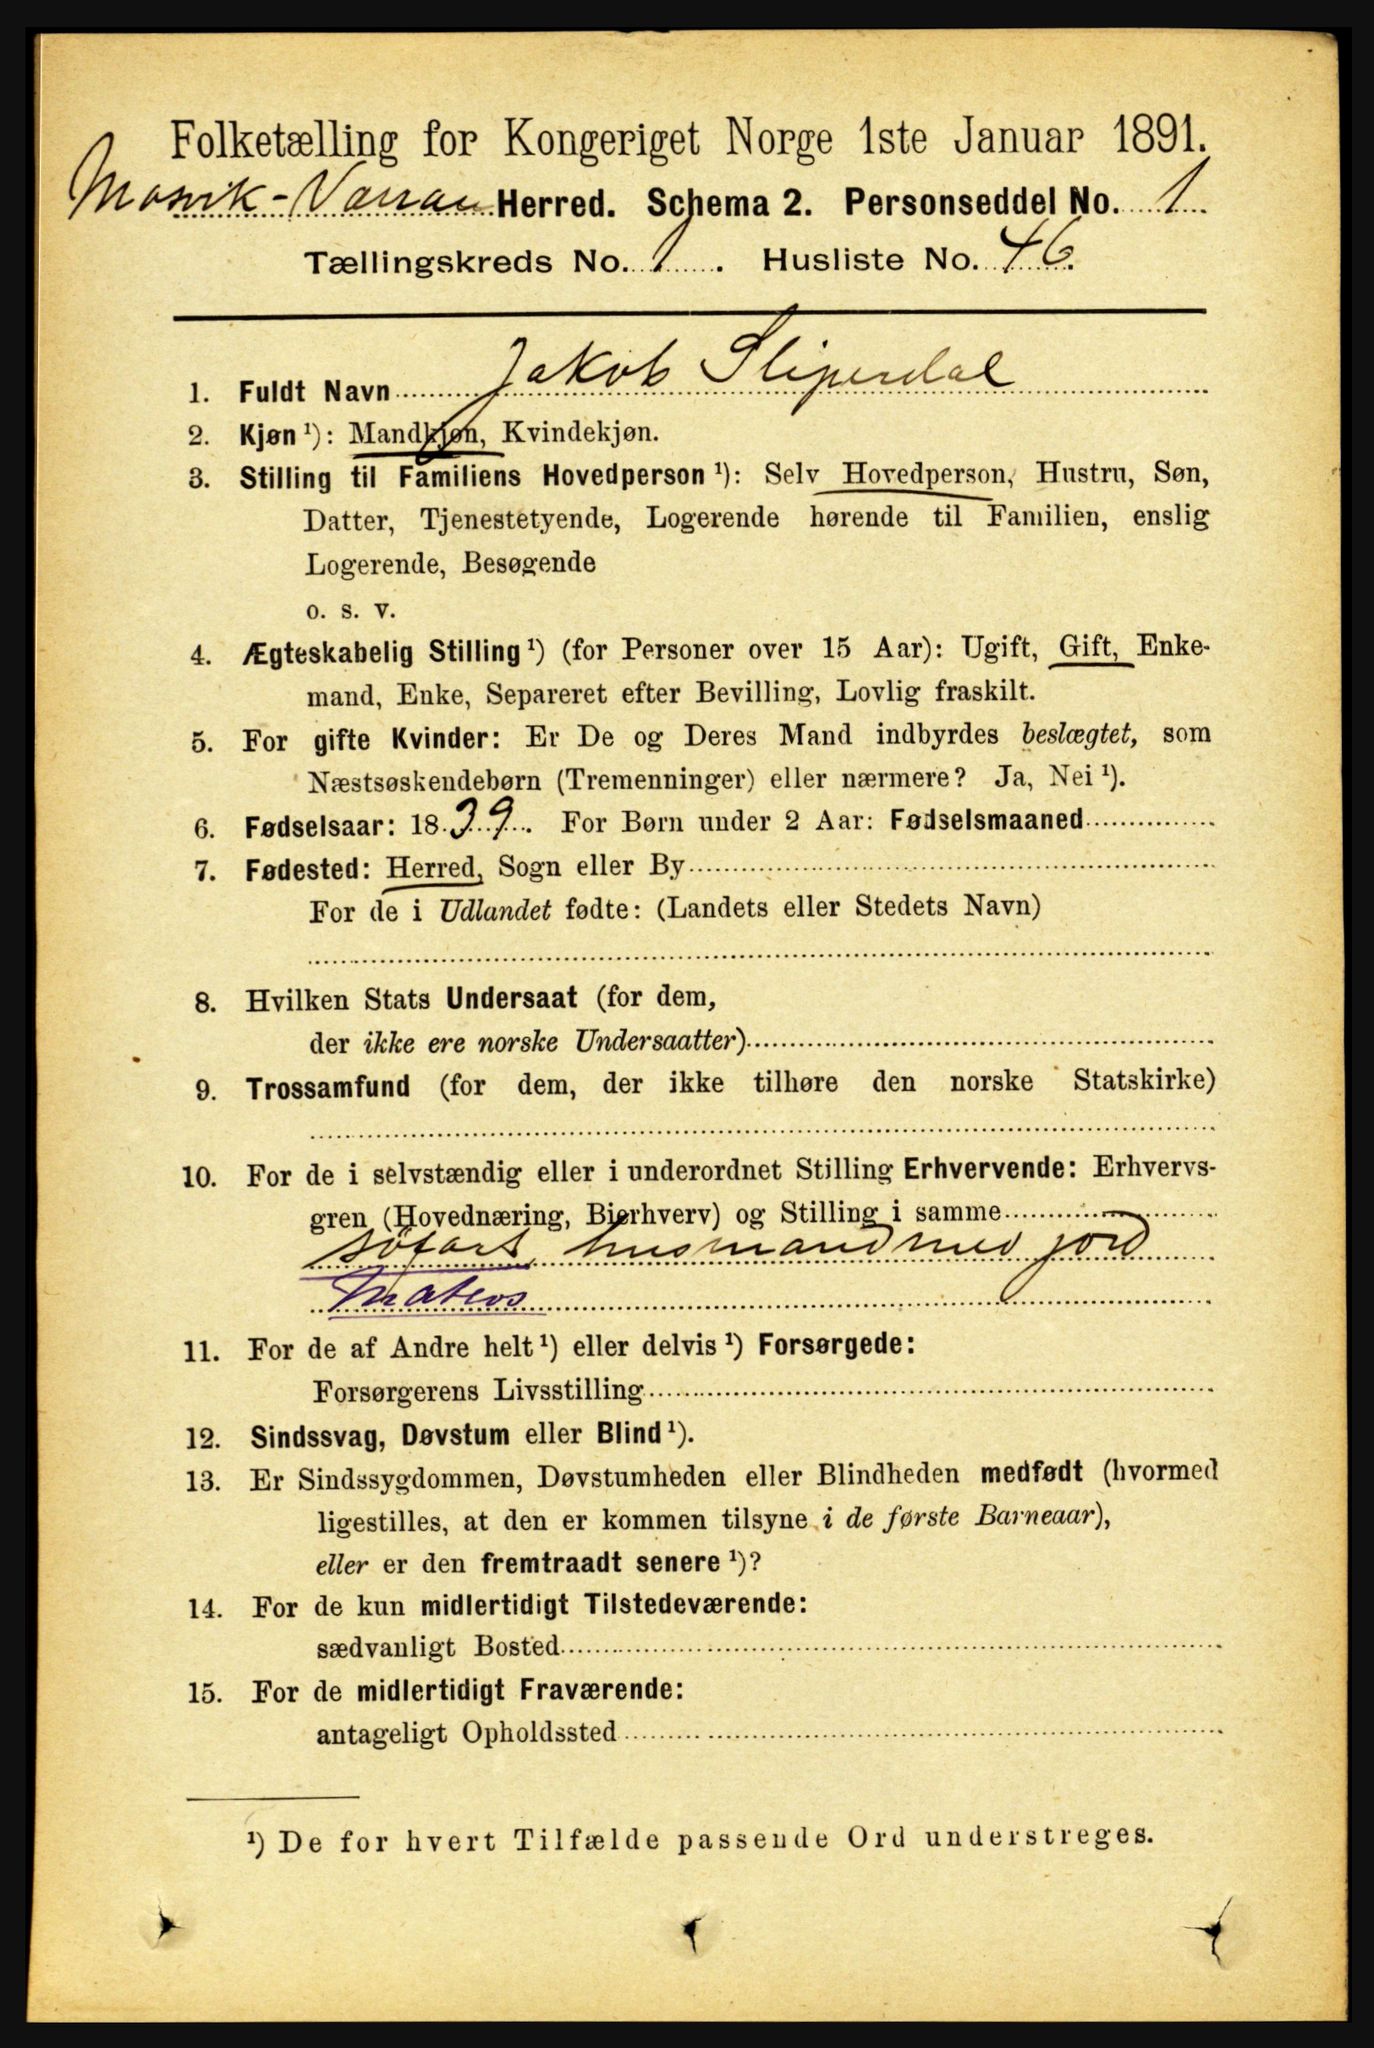 Folketælling for Kongeriget Norge 1ste Januar 1891.
Mosvik-Varran Herred. Schema 2. Personseddel No. 1
Tællingskreds No. 1. Husliste No. 46.
1. Fuldt Navn Jakob Sliperdal
2. Kjøn ¹): Mandkjøn, Kvindekjøn.
3. Stilling til Familiens Hovedperson ¹): Selv Hovedperson, Hustru, Søn,
Datter, Tjenestetyende, Logerende hørende til Familien, enslig
Logerende, Besøgende
o. s. v.
4. Ægteskabelig Stilling ¹) (for Personer over 15 Aar): Ugift, Gift, Enke-
mand, Enke, Separeret efter Bevilling, Lovlig fraskilt.
5. For gifte Kvinder: Er De og Deres Mand indbyrdes beslægtet, som
Næstsøskendebørn (Tremenninger) eller nærmere? Ja, Nei ¹).
6. Fødselsaar: 1839. For Børn under 2 Aar: Fødselsmaaned
7. Fødested: Herred, Sogn eller By
For de i Udlandet fødte: (Landets eller Stedets Navn)
8. Hvilken Stats Undersaat (for dem,
der ikke ere norske Undersaatter)
9. Trossamfund (for dem, der ikke tilhøre den norske Statskirke)
10. For de i selvstændig eller i underordnet Stilling Erhvervende: Erhvervs-
gren (Hovednæring, Bierhverv) og Stilling i samme
söfart, husmand med jord
Matros
11. For de af Andre helt ¹) eller delvis ¹) Forsørgede:
Forsørgerens Livsstilling
12. Sindssvag, Døvstum eller Blind ¹).
13. Er Sindssygdommen, Døvstumheden eller Blindheden medfødt (hvormed
ligestilles, at den er kommen tilsyne i de første Barneaar),
eller er den fremtraadt senere ¹)?
14. For de kun midlertidigt Tilstedeværende:
sædvanligt Bosted
15. For de midlertidigt Fraværende:
antageligt Opholdssted
¹) De for hvert Tilfælde passende Ord understreges.